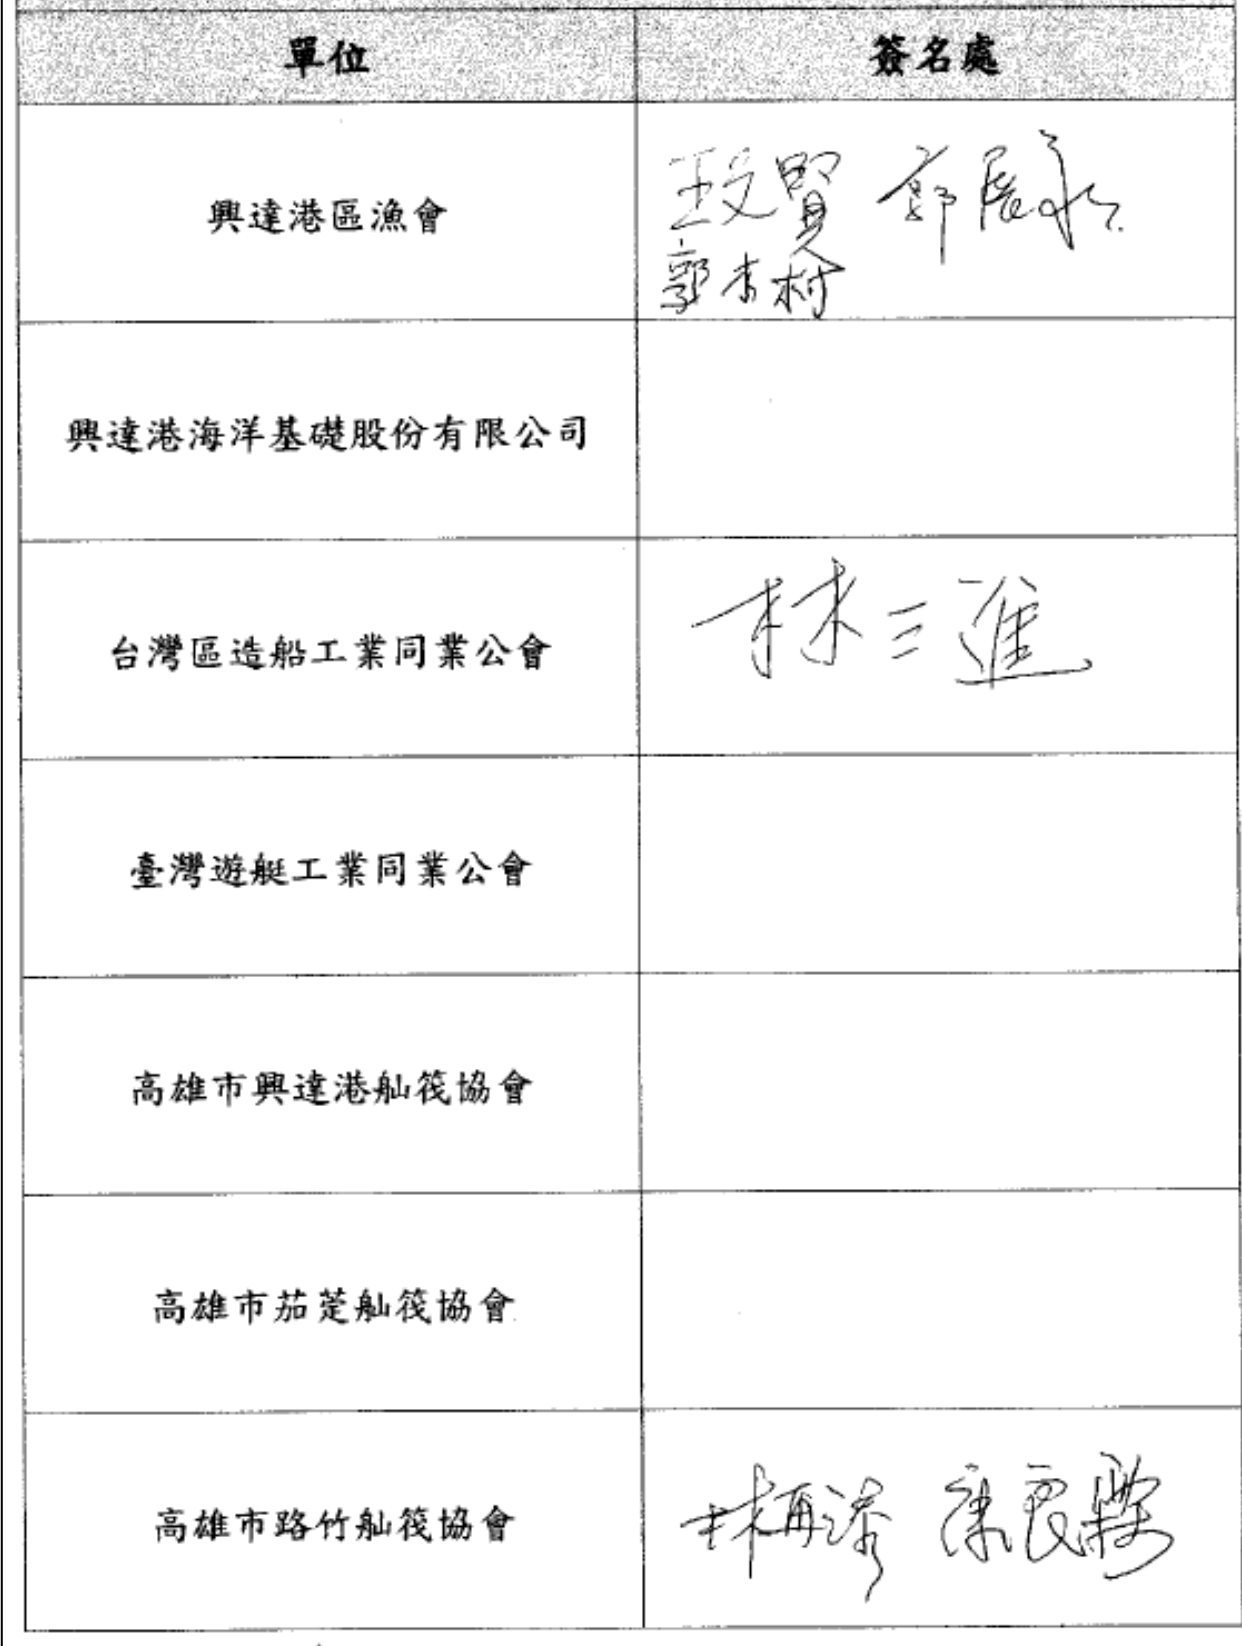 單位 簽名處
興達港區漁會
郭
興達港海洋基礎股份有限公司
台灣區造船工業同業公會 林三進
臺灣遊艇工業同業公會
高雄市興達港舢筏協會
高雄市茄萣舢筏協會
高雄市路竹舢筏協會 林再添 康良